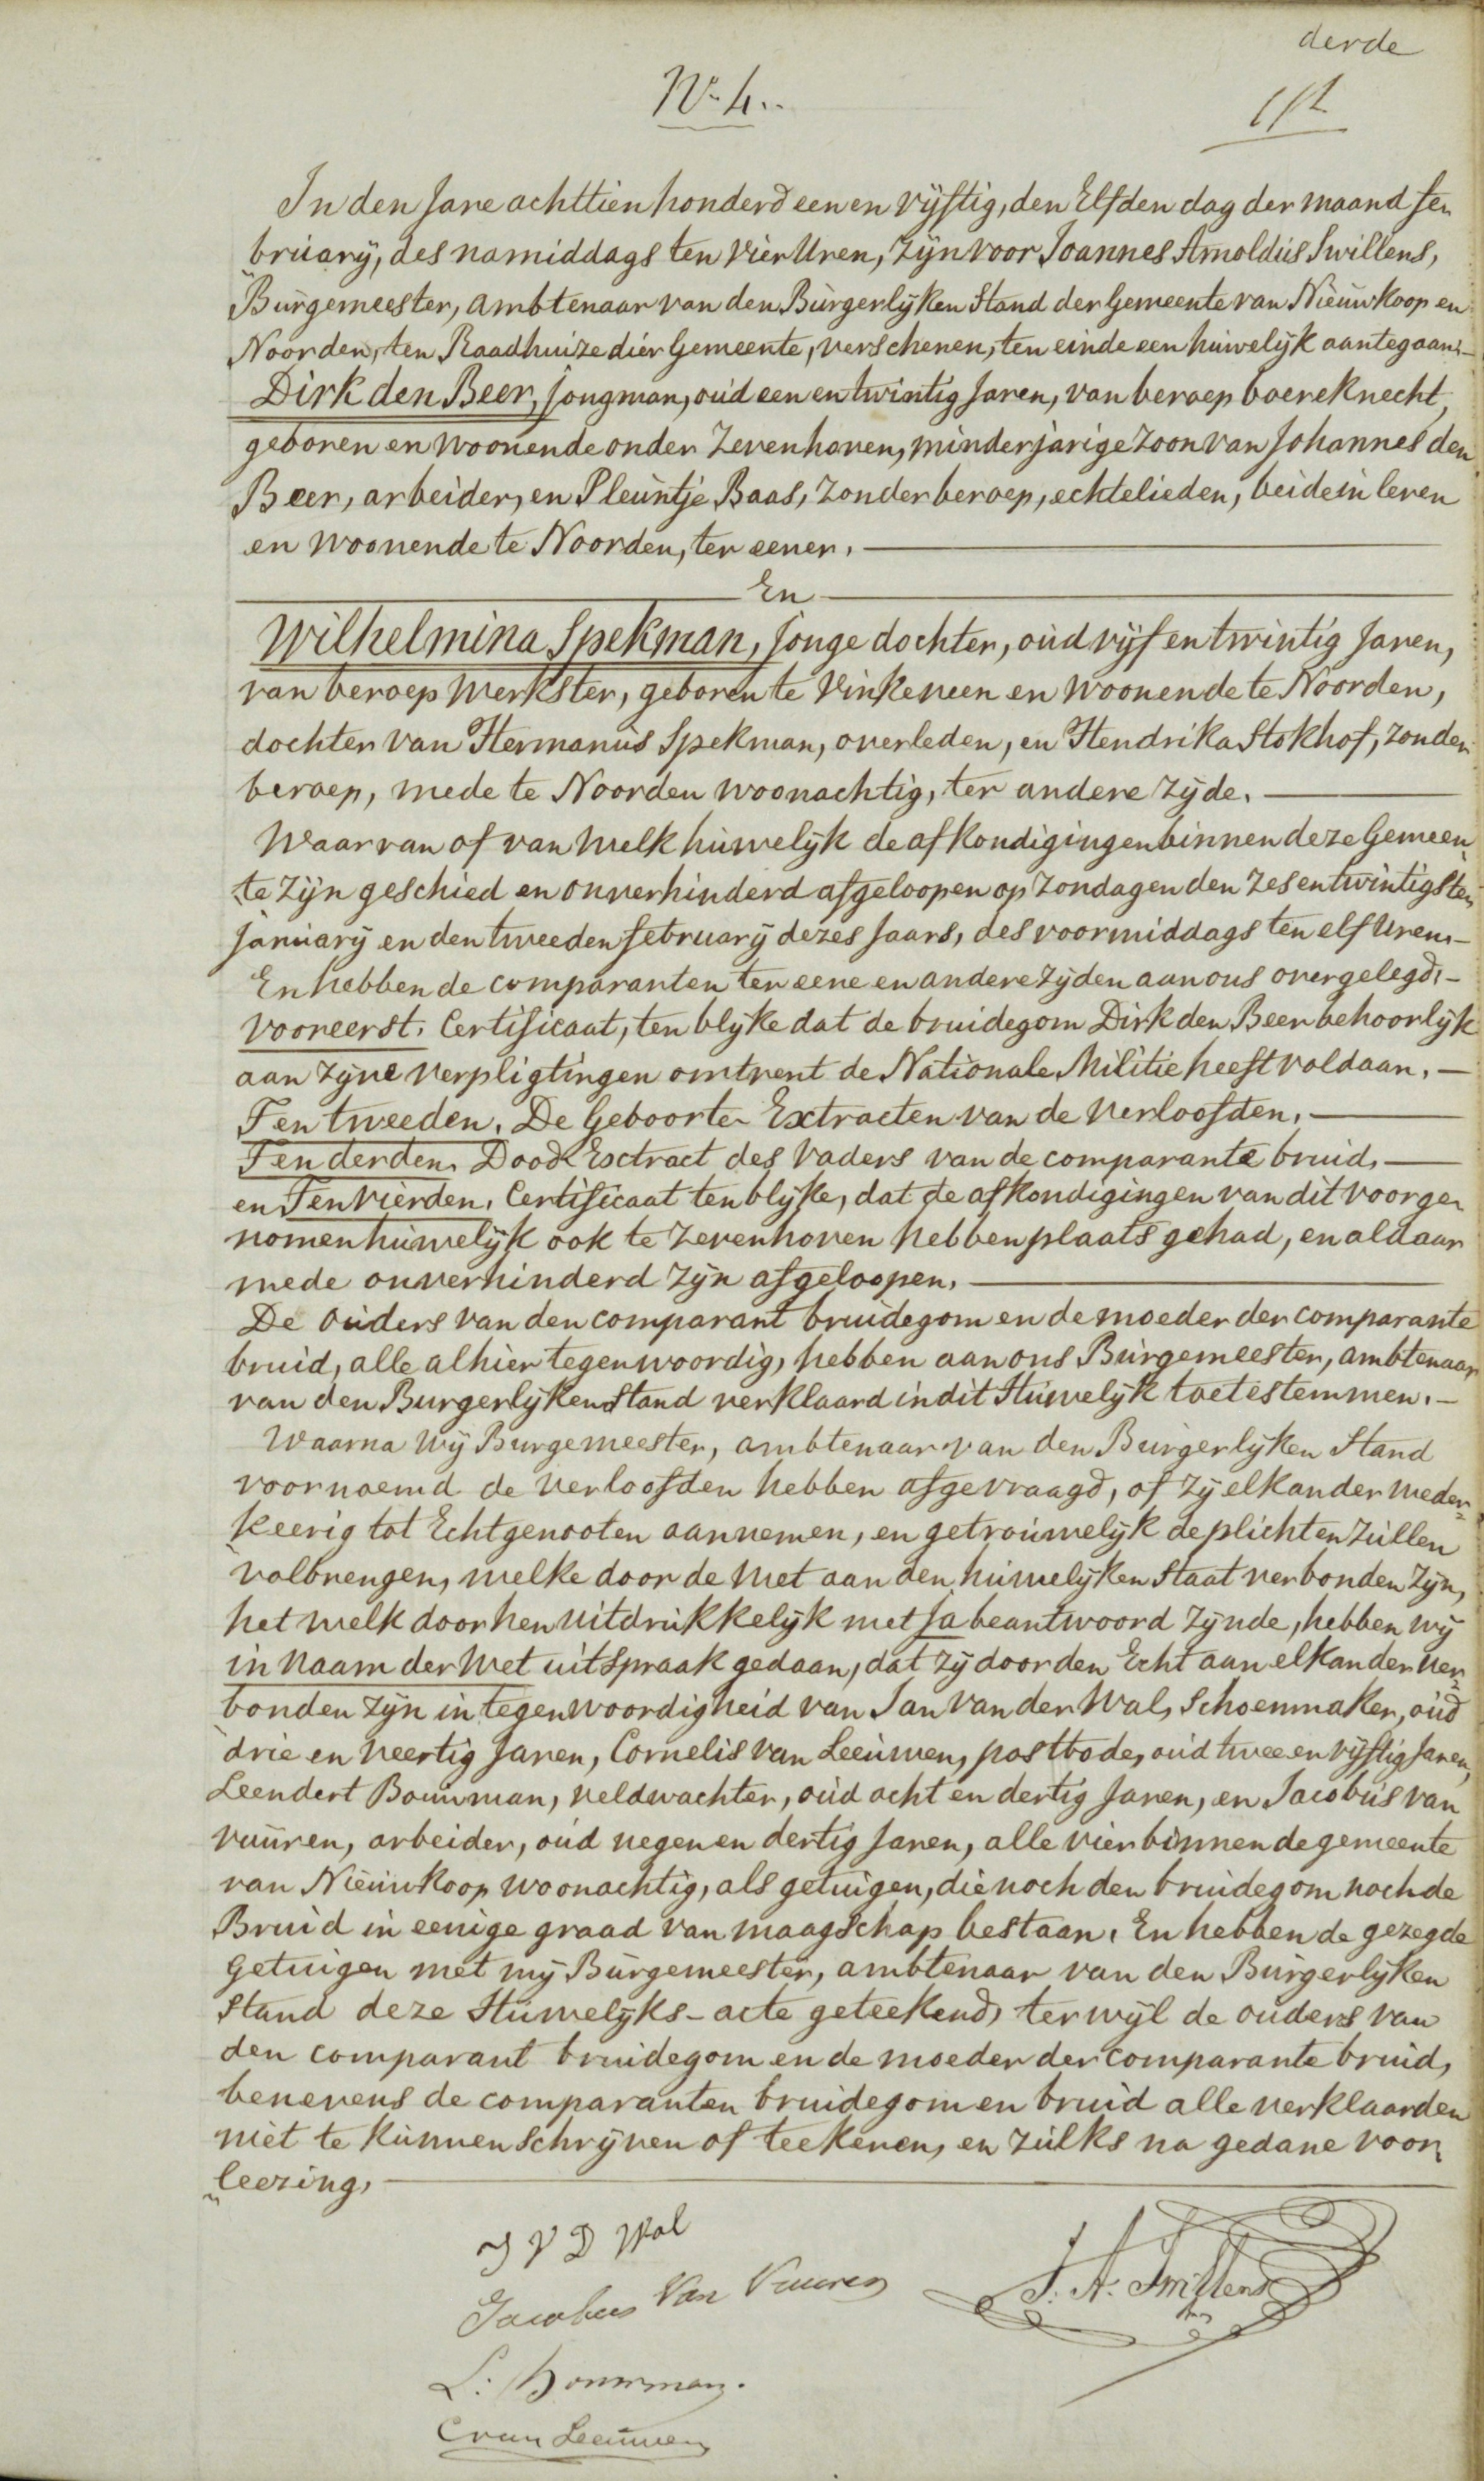 derde
No 4..
In den Jare achttien honderd een en vijftig, den Elfden dag der maand fe„
„bruarij, des namiddags ten vier Uren, Zijn voor Joannes Arnoldus Swillens,
Burgemeester, ambtenaar van den Burgerlijken Stand der Gemeente van Nieuwkoop en
Noorden, ten Raadhuize dier Gemeente, verschenen, ten einde een huwelijk aantegaan:–
Dirk den Beer, jongman, oud een en twintig Jaren, van beroep boereknecht,
geboren en woonende onder Zevenhoven, minderjarige Zoon van Johannes den
Beer, arbeider, en Pleuntje Baas, Zonder beroep, echtelieden, beide in leven
en woonende te Noorden, ter eener. —
— En —
Wilhelmina Spekman, jonge dochter, oud vijf en twintig Jaren,
van beroep Werkster, geboren te Vinkeveen en woonende te Noorden,
dochter van Hermanus Spekman, overleden, en Hendrika Stokhof, Zonder
beroep, mede te Noorden woonachtig, ter andere Zijde. —
Waarvan of van Welk huwelijk de afkondigingen binnen deze Gemeen„
„te Zijn geschied en onverhinderd afgeloopen op Zondagen den Zes en twintigsten
January en den tweeden february dezes Jaars, des voormiddags ten elf Uren.–
En hebben de comparanten ter eene en andere Zijden aan ons overgelegd.–
Vooreerst. Certificaat, ten blijke dat de bruidegom Dirk den Beer behoorlijk
aan Zijne verpligtingen omtrent de Nationale Militie heeft voldaan. —
Ten tweeden. De Geboorte Extracten van de Verloofden. —
Ten derden. Dood Extract des Vaders van de comparante bruid. —
en Ten Vierden. Certificaat ten blijke, dat de afkondigingen van dit voorge„
nomen huwelijk ook te Zevenhoven hebben plaats gehad, en aldaar
mede onverhinderd Zijn afgeloopen. —
De Ouders van den comparant bruidegom en de moeder der comparante
bruid, alle alhier tegenwoordig, hebben aan ons Burgemeester, ambtenaar
van den Burgerlijken Stand verklaard in dit Huwelijk toetestemmen. –
Waarna Wij Burgemeester, ambtenaar van den Burgerlijken Stand
voornoemd de Verloofden hebben afgevraagd, of Zij elkander weder„
keerig tot Echtgenooten aannemen, en getrouwelijk de plichten Zullen
volbrengen, welke door de Wet aan den huwelijken Staat verbonden Zijn,
het welk door hen Uitdrukkelijk met Ja beantwoord Zijnde, hebben wij
in Naam der Wet uitspraak gedaan, dat Zij door den Echt aan elkander Ver„
bonden Zijn in tegenwoordigheid van Jan Van der Wal, Schoenmaker, oud
drie en Veertig Jaren, Cornelis van Leeuwen, postbode, oud twee en vijftig Jaren,
Leendert Bouwman, veldwachter, oud acht en dertig Jaren, en Jacobus van
vuuren, arbeider, oud negen en dertig Jaren, alle vier binnen de gemeente
van Nieuwkoop woonachtig, als getuigen, die noch den bruidegom noch de
Bruid in eenige graad van maagschap bestaan. En hebben de gezegde
Getuigen met mij Burgemeester, ambtenaar van den Burgerlijken
Stand deze Huwelijks-acte geteekend, terwijl de ouders van
den comparant bruidegom en de moeder der comparante bruid,
benevens de comparanten bruidegom en bruid alle verklaarden
niet te kunnen Schrijven of teekenen, en Zulks na gedane voor„
„leezing. —
J V D Wal
Jacobus Van Vuuren
J. A. Swillens
L. Bouwman.
C van Leeuwen